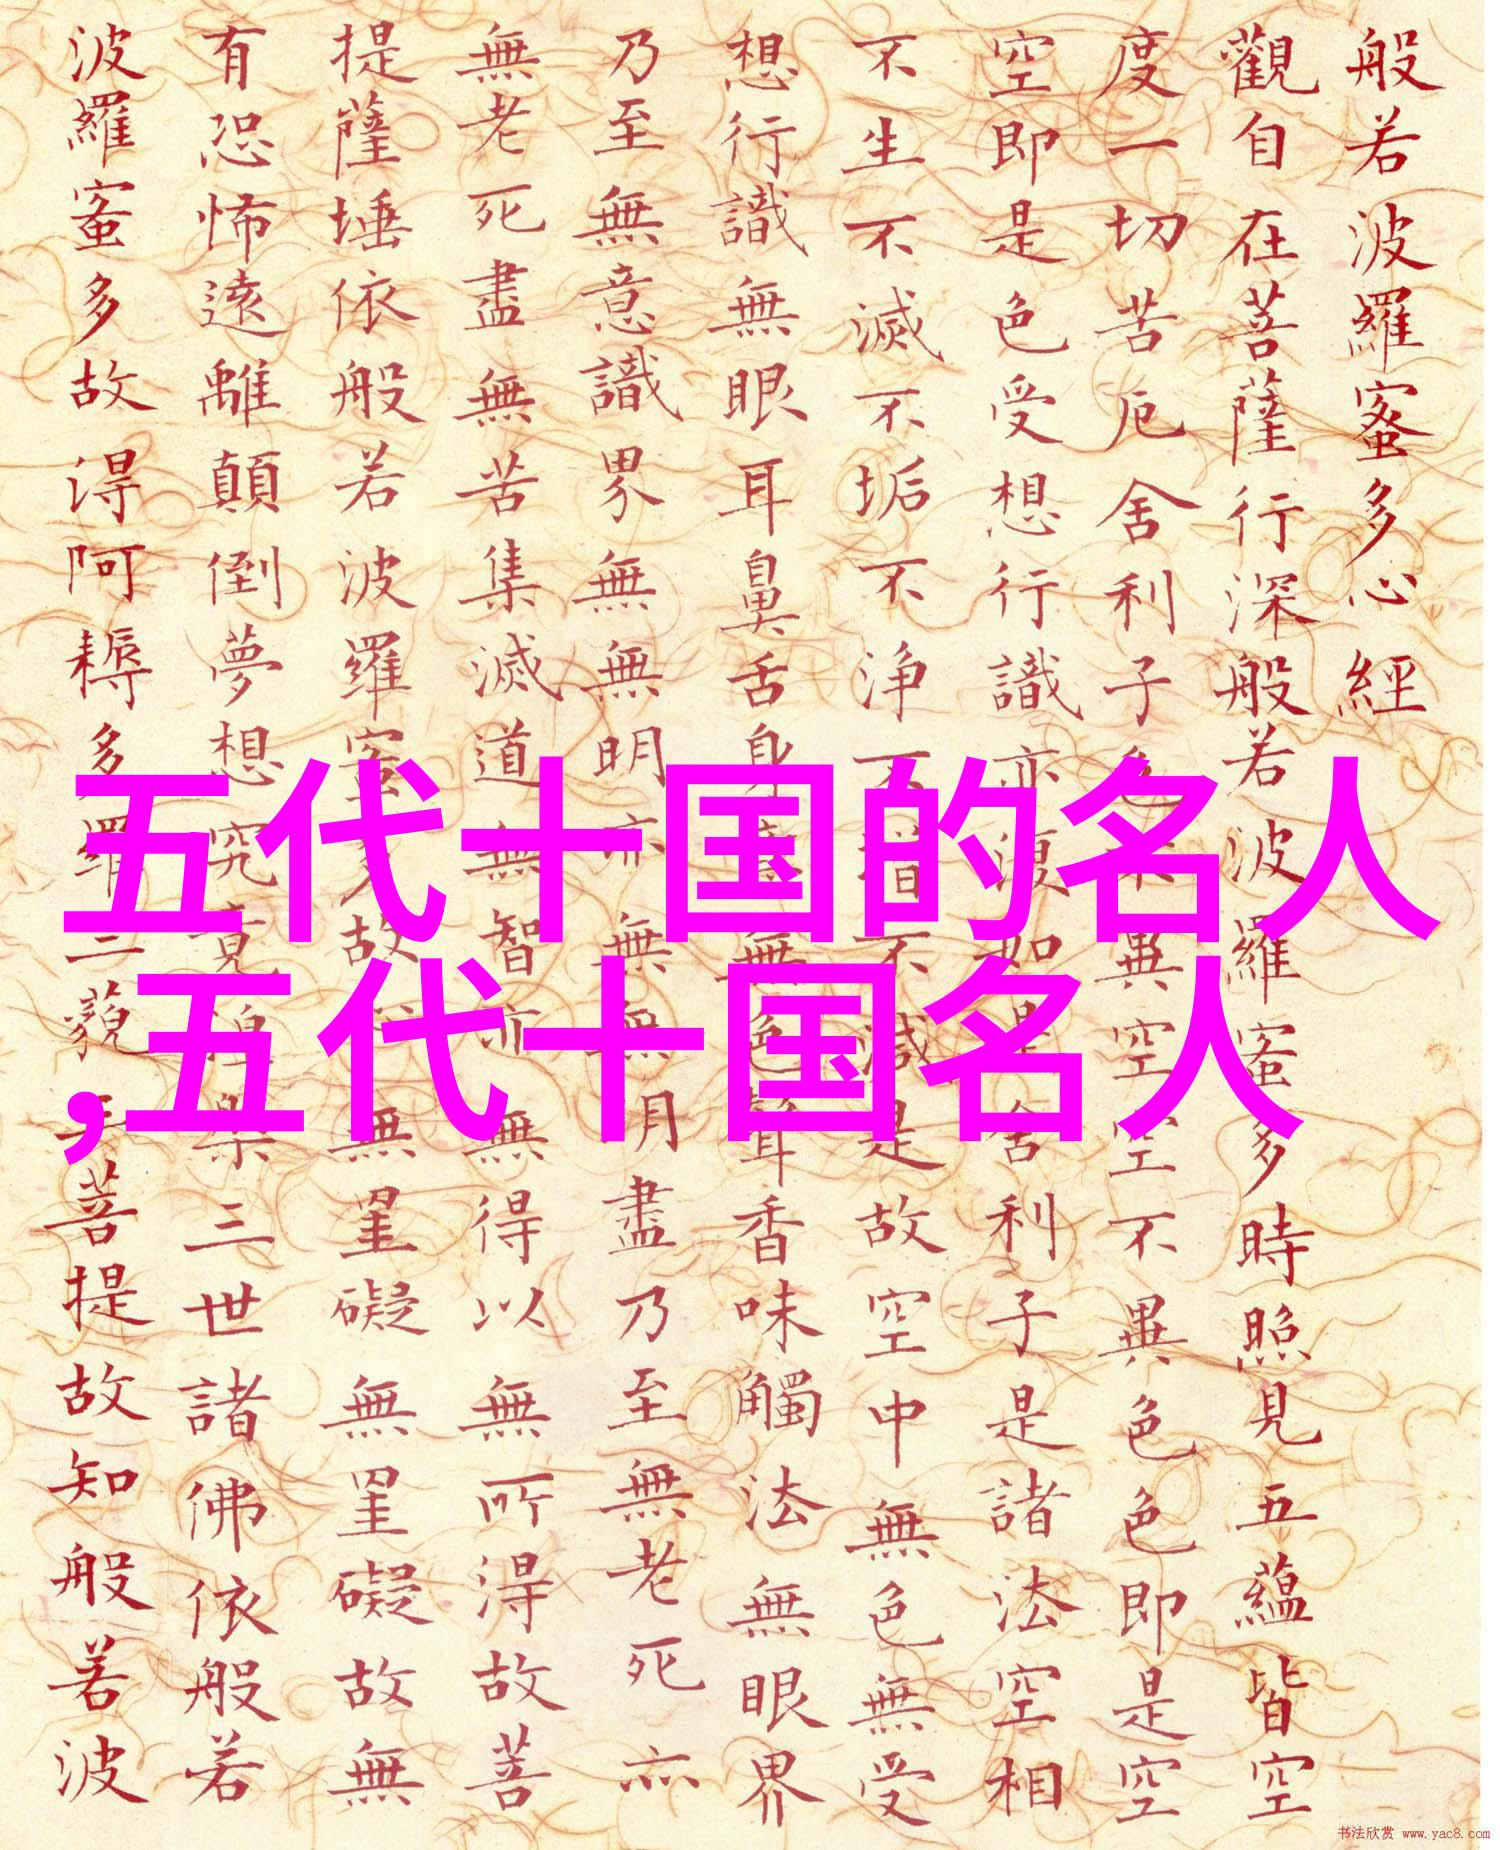 般若波羅蜜多心經
觀自在菩薩行深般若波羅蜜多時照見五蘊皆空
度一切苦厄舍利子色不異空空不異色色即是空
空即是色受想行識亦復如是舍利子是諸法空相
不生不滅不垢不淨不增不減是故空中無色無受
想行識無眼耳鼻舌身意無色聲香味觸法無眼界
乃至無意識界無無明亦無無明盡乃至無老死亦
無老死盡無苦集滅道無智亦無得以無所得故菩
提薩埵依般若波羅蜜多故心無罣礙無罣礙故無
有恐怖遠離顛倒夢想究竟涅槃三世諸佛依般若
波羅蜜多故得阿耨多羅三藐三菩提故知般若波
五代十国的名人
,五代十国名人
书法欣赏 www.yac8.com